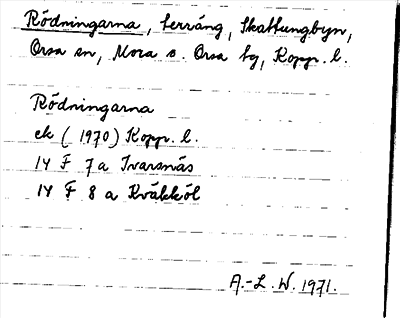 Rödningarna, terräng, Skattungbyn,
Orsa sn, Mora o. Orsa tg, Kopp. l.
Rödningarna
ek (1970) Kopp. l.
14 F 7 a Ivarsnäs
14 F 8 a Kväkköl
A.-L. W. 1971.